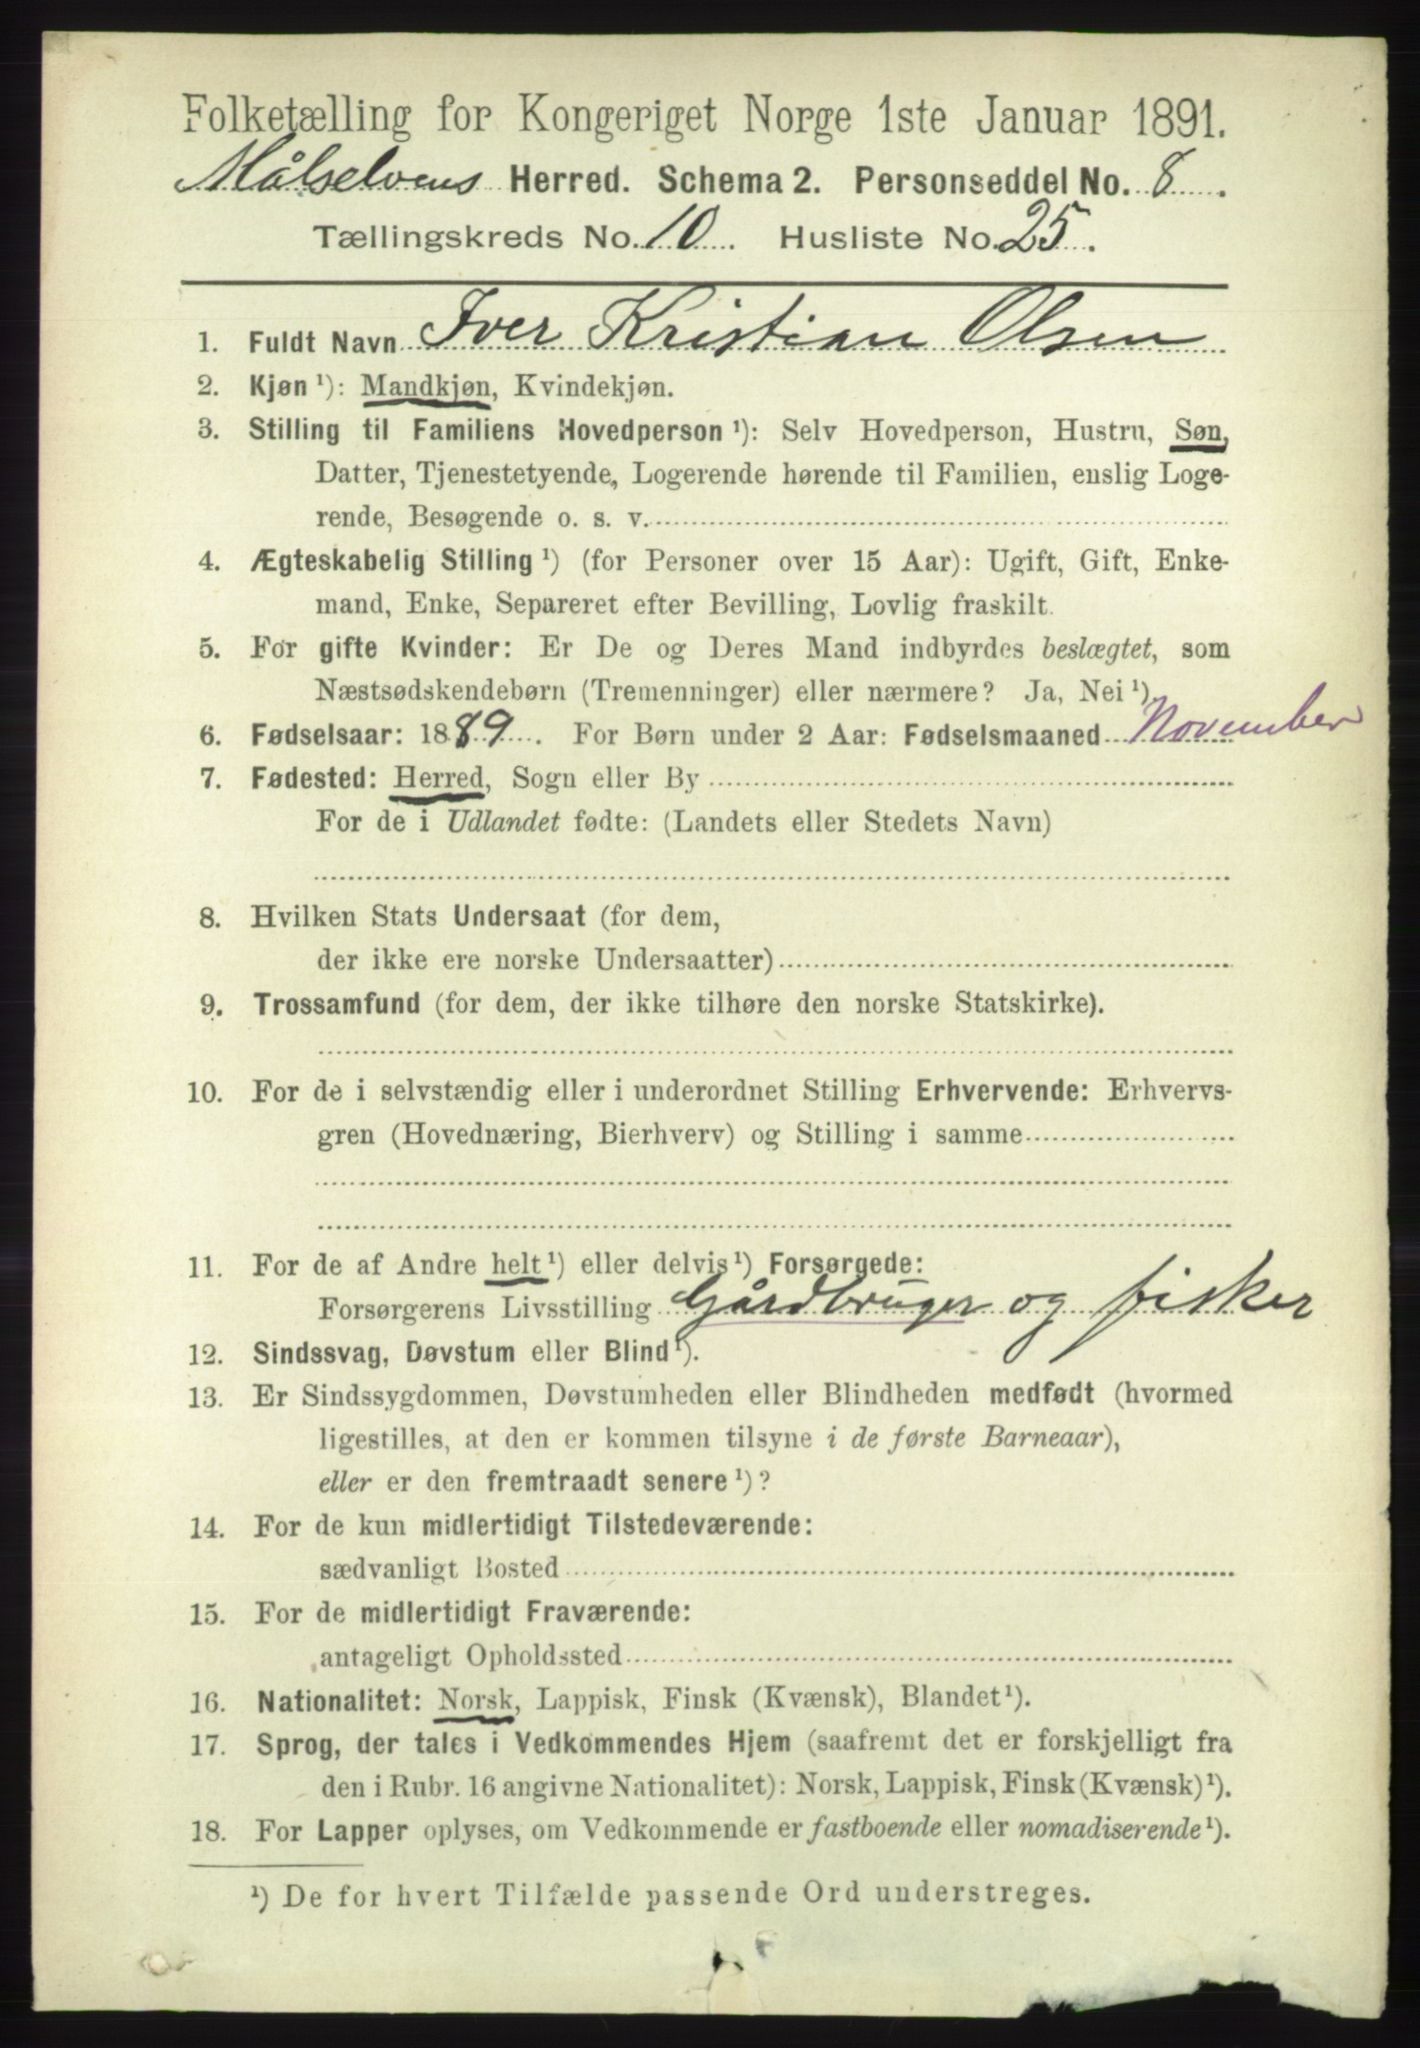 Folketælling for Kongeriget Norge 1ste Januar 1891.
Målselvens Herred. Schema 2. Personseddel No. 8.
Tællingskreds No. 10. Husliste No. 25.
1. Fuldt Navn Iver Kristian Olsen
2. Kjøn ¹): Mandkjøn, Kvindekjøn.
3. Stilling til Familiens Hovedperson ¹): Selv Hovedperson, Hustru, Søn,
Datter, Tjenestetyende, Logerende hørende til Familien, enslig Loge-
rende, Besøgende o. s. v.
4. Ægteskabelig Stilling ¹) (for Personer over 15 Aar): Ugift, Gift, Enke-
mand, Enke, Separeret efter Bevilling, Lovlig fraskilt.
5. For gifte Kvinder: Er De og Deres Mand indbyrdes beslægtet, som
Næstsødskendebørn (Tremenninger) eller nærmere? Ja, Nei ¹).
6. Fødselsaar: 1889. For Børn under 2 Aar: Fødselsmaaned November
7. Fødested: Herred, Sogn eller By
For de i Udlandet fødte: (Landets eller Stedets Navn)
8. Hvilken Stats Undersaat (for dem,
der ikke ere norske Undersaatter)
9. Trossamfund (for dem, der ikke tilhøre den norske Statskirke).
10. For de i selvstændig eller i underordnet Stilling Erhvervende: Erhvervs-
gren (Hovednæring, Bierhverv) og Stilling i samme
11. For de af Andre helt ¹) eller delvis ¹) Forsørgede:
Forsørgerens Livsstilling Gårdbruger og fisker
12. Sindssvag, Døvstum eller Blind ¹).
13. Er Sindssygdommen, Døvstumheden eller Blindheden medfødt (hvormed
ligestilles, at den er kommen tilsyne i de første Barneaar),
eller er den fremtraadt senere ¹)?
14. For de kun midlertidigt Tilstedeværende:
sædvanligt Bosted
15. For de midlertidigt Fraværende:
antageligt Opholdssted
16. Nationalitet: Norsk, Lappisk, Finsk (Kvænsk), Blandet ¹).
17. Sprog, der tales i Vedkommendes Hjem (saafremt det er forskjelligt fra
den i Rubr. 16 angivne Nationalitet): Norsk, Lappisk, Finsk (Kvænsk) ¹).
18. For Lapper oplyses, om Vedkommende er fastboende eller nomadiserende ¹).
¹) De for hvert Tilfælde passende Ord understreges.